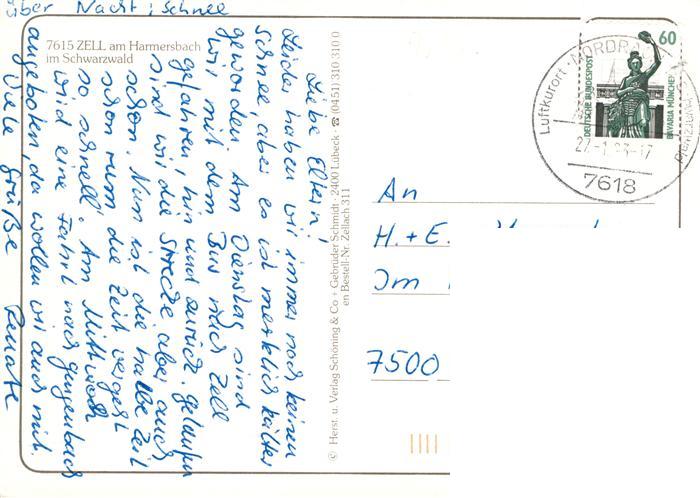 über Nacht: Schnee
7615 ZELL am Harmersbach
im Schwarzwald
Liebe Eltern!
Leider haben wir immer noch keinen
Schnee, aber es ist merklich kälter
geworden. Am Dienstag sind
wir mit dem Bus nach Zell
gefahren, hin und zurück. gelaufen
sind wir die Strecke aber auch
schon. Nun ist die halbe Zeit
schon rum die Zeit vergeht
so schnell. Am Mittwoch
wird eine Fahrt nach Gengenbach
angeboten, da wollen wir auch mit.
Viele Grüße Renate
© Herst. u. Verlag Schöning & Co + Gebrüder Schmidt · 2400 Lübeck · ☎ (0451) 310 310 0
en Bestell-Nr. Zellach 311
60
DEUTSCHE BUNDESPOST
BAVARIA MÜNCHEN
Luftkurort · NORDRA
7618
An
H. + E.
Im
7500